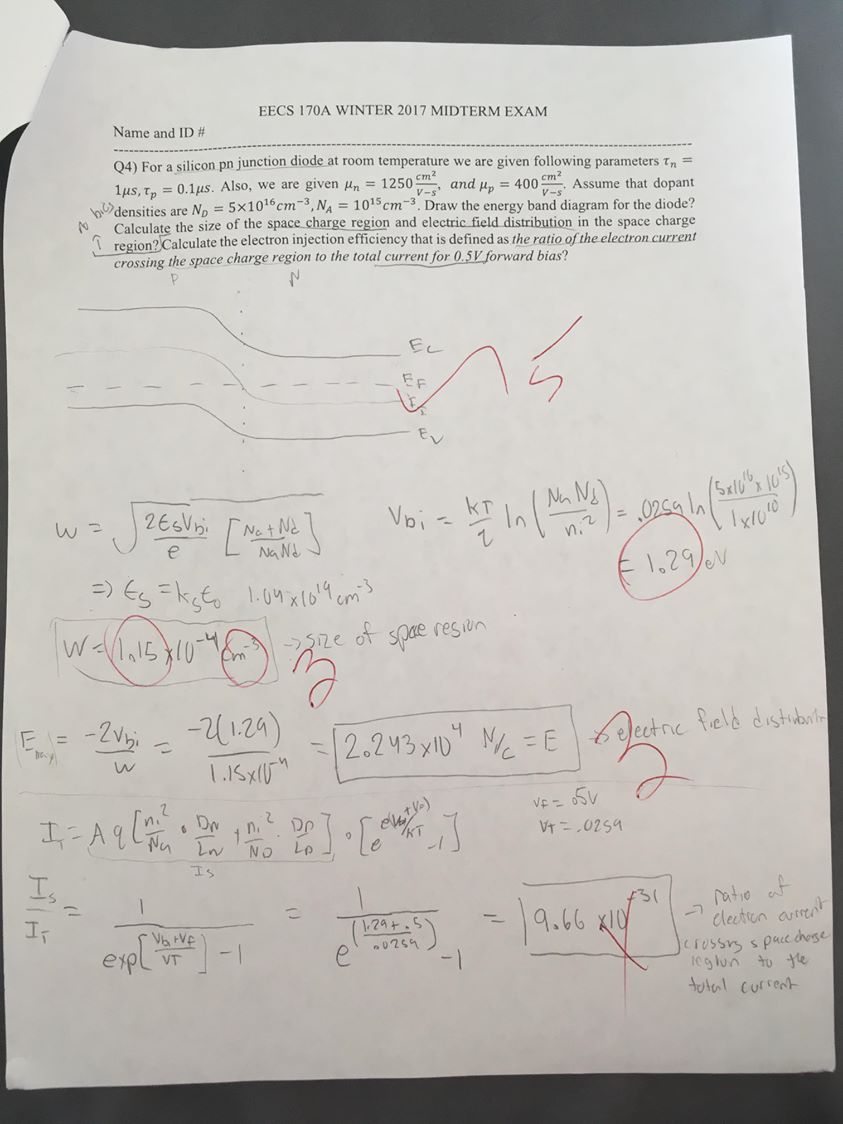 EECS 170A WINTER 2017 MIDTERM EXAM
Name and ID #
Q4) For a silicon pn junction diode at room temperature we are given following parameters τn =
1μs, τp = 0.1μs. Also, we are given μn = 1250 cm²/V−s, and μp = 400 cm²/V−s. Assume that dopant
densities are ND = 5×10¹⁶cm⁻³, NA = 10¹⁵cm⁻³. Draw the energy band diagram for the diode?
Calculate the size of the space charge region and electric field distribution in the space charge
region? Calculate the electron injection efficiency that is defined as the ratio of the electron current
crossing the space charge region to the total current for 0.5V forward bias?
P N
Ec
EF
Ev
5
W = √(2εsVbi/e [Na+Nd/NaNd])
Vbi = kT/q ln(NaNd/ni²) = .0259 ln(5x10¹⁶ x 10¹⁵/1x10¹⁰)
= 1.29 eV
=> εs = ksε0 1.04x10¹⁹cm⁻³
W = 1.15x10⁻⁴ cm⁻³ → size of space region
3
|Emax| = -2Vbi/W = -2(1.29)/1.15x10⁻⁴ = 2.243x10⁴ N/C = E → electric field distribution
2
VF = .05V
VT = .0259
IT = Aq[ni²/Na · DN/LN + ni²/ND · DP/LP] · [e^(e(Vbi+V0)/kT) -1]
Is
Is/IT = 1/exp[Vbi+VF/VT]-1 = 1/e^(1.29+.5/.0259)-1 = 9.66 x10⁻³¹ → ratio of
electron current
crossing space charge
region to the
total current